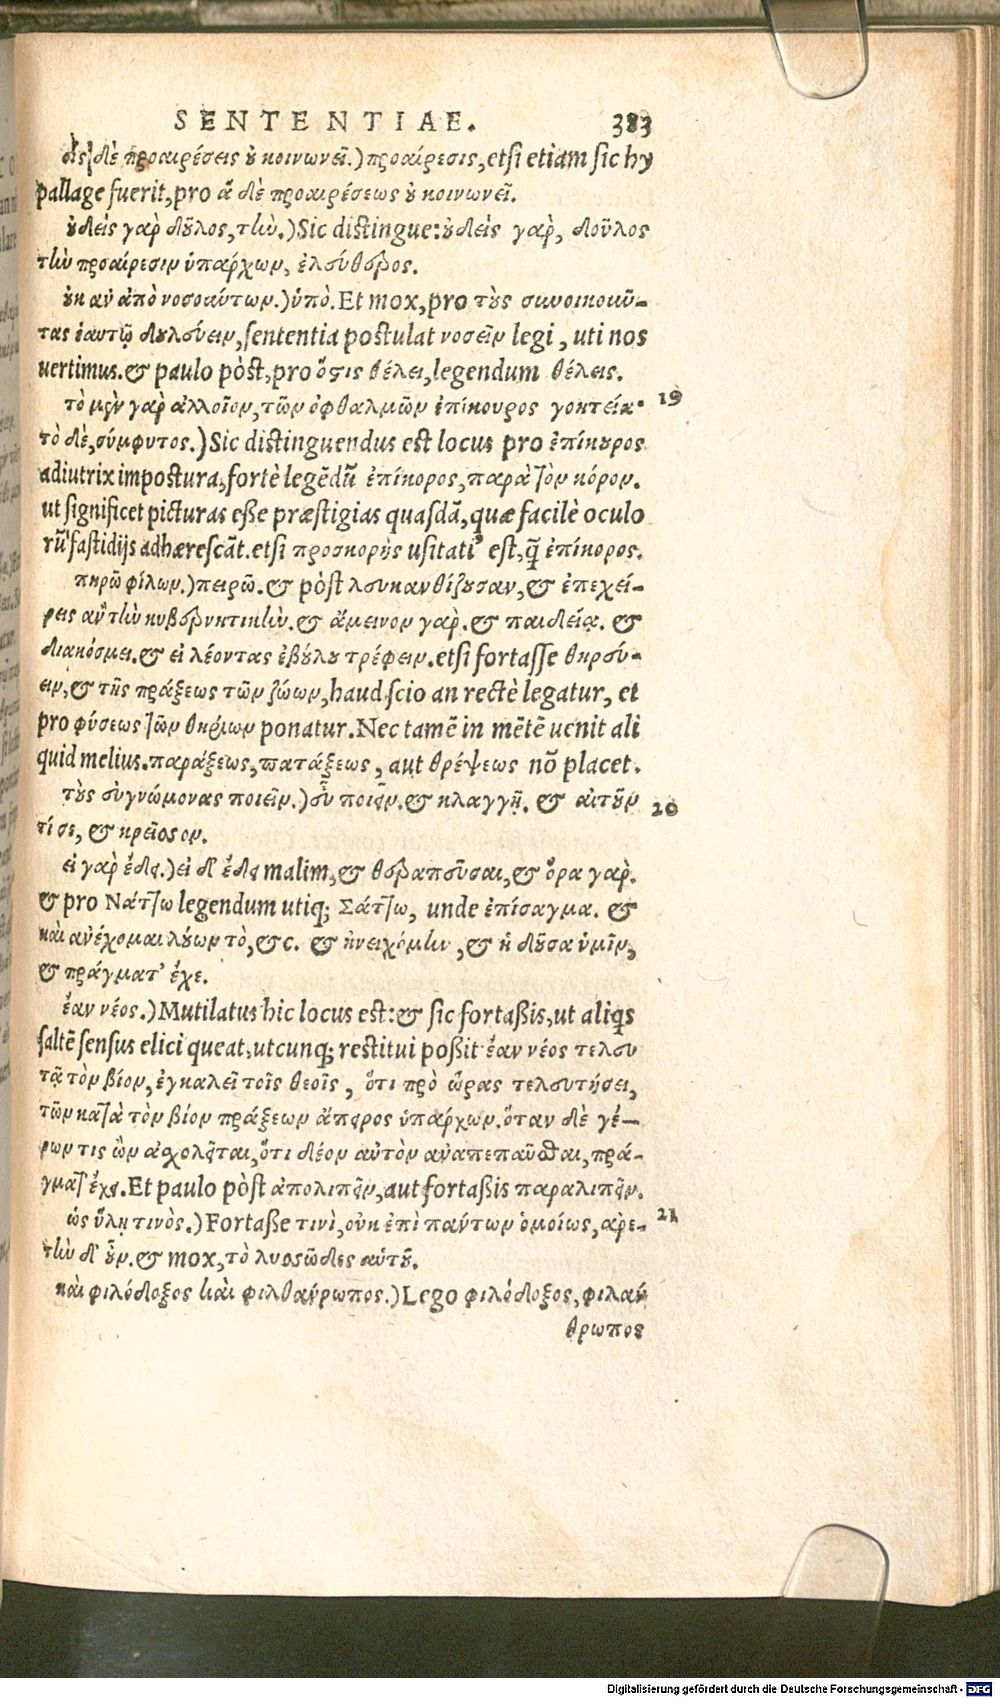 SENTENTIAE. 383
δὲ προαιρέσεις ȣ κοινωνεῖ.) προαίρεσις, etsi etiam sic hy
pallage fuerit, pro ἃ δὲ προαιρέσεως ȣ κοινωνεῖ.
ȣδεὶς γὰρ δȣ͂λος, τὴν.) Sic distingue: ȣδεὶς γὰρ, δοῦλος
τὴν προαίρεσιν ὑπάρχων, ἐλεύθερος.
ȣκ ἂν ἀπὸ νοσούντων.) ὑπὸ. Et mox, pro τȣ̀ς συνοικοῦ-
τας ἑαυτῷ δȣλεύειν, sententia postulat νοσεῖν legi, uti nos
uertimus. & paulo pòst, pro ὅστις θέλει, legendum θέλεις.
τὸ μὲν γὰρ ἀλλοῖον, τῶν ὀφθαλμῶν ἐπίκουρος γοητεία· 19
τὸ δὲ, σύμφυτος.) Sic distinguendus est locus pro ἐπίκȣρος
adiutrix impostura, fortè legēdū ἐπίκορος, παρὰ τὸν κόρον.
ut significet picturas eße præstigias quasdā, quæ facilè oculo
rū fastidijs adhærescāt. etsi προσκορὴς usitati' est, q̃ ἐπίκορος.
πηρῶ φίλων.) πειρῶ. & pòst λευκανθίζȣσαν, & ἐπεχεί-
ρεις ἂν τὴν κυβερνητικὴν. & ἄμεινον γὰρ. & παιδείᾳ. &
διακόσμει. & εἰ λέοντας ἐβȣ́λȣ τρέφειν. etsi fortasse θηρεύ-
ειν, & τῆς πράξεως τῶν ζώων, haud scio an rectè legatur, et
pro φύσεως τῶν θηρίων ponatur. Nec tamē in mētē uenit ali
quid melius. παράξεως, πατάξεως, aut θρέψεως nō placet.
τȣ̀ς συγνώμονας ποιεῖν.) εὖ ποιεῖν. & κλαγγῇ. & αἰτȣ͂ν 20
τί σε, & κρεῖοσον.
εἰ γὰρ ἔδει.) εἰ δ' ἔδει malim, & θεραπεῦσαι, & ὅρα γὰρ.
& pro Νάττω legendum utiq; Σάττω, unde ἐπίσαγμα. &
καὶ ἀνέχομαι λύων τὸ, &c. & ἠνειχόμην, & ἡ δȣ͂σα ὑμῖν,
& πράγματ' ἔχε.
ἐὰν νέος.) Mutilatus hic locus est: & sic fortaßis, ut aliqs
saltē sensus elici queat, utcunq; restitui poßit ἐὰν νέος τελευ
τᾷ τὸν βίον, ἐγκαλεῖ τοῖς θεοῖς, ὅτι πρὸ ὥρας τελευτήσει,
τῶν κατὰ τὸν βίον πράξεων ἄπειρος ὑπάρχων. ὅταν δὲ γέ-
ρων τις ὢν ἀσχολεῖται, ὅτι δέον αὐτὸν ἀναπεπαῦσθαι, πρά-
γματ' ἔχει. Et paulo pòst ἀπολιπεῖν, aut fortaßis παραλιπεῖν.
ὡς ὕλη τινὸς.) Fortaße τινὶ, οὐκ ἐπὶ πάντων ὁμοίως, ἀρε- 21
τὴν δ' ȣ̓͂ν. & mox, τὸ λυσσῶδες αὑτȣ͂.
καὶ φιλόδοξος καὶ φιλθαύρωπος.) Lego φιλόδοξος, φιλάν
θρωπος
Digitalisierung gefördert durch die Deutsche Forschungsgemeinschaft - DFG